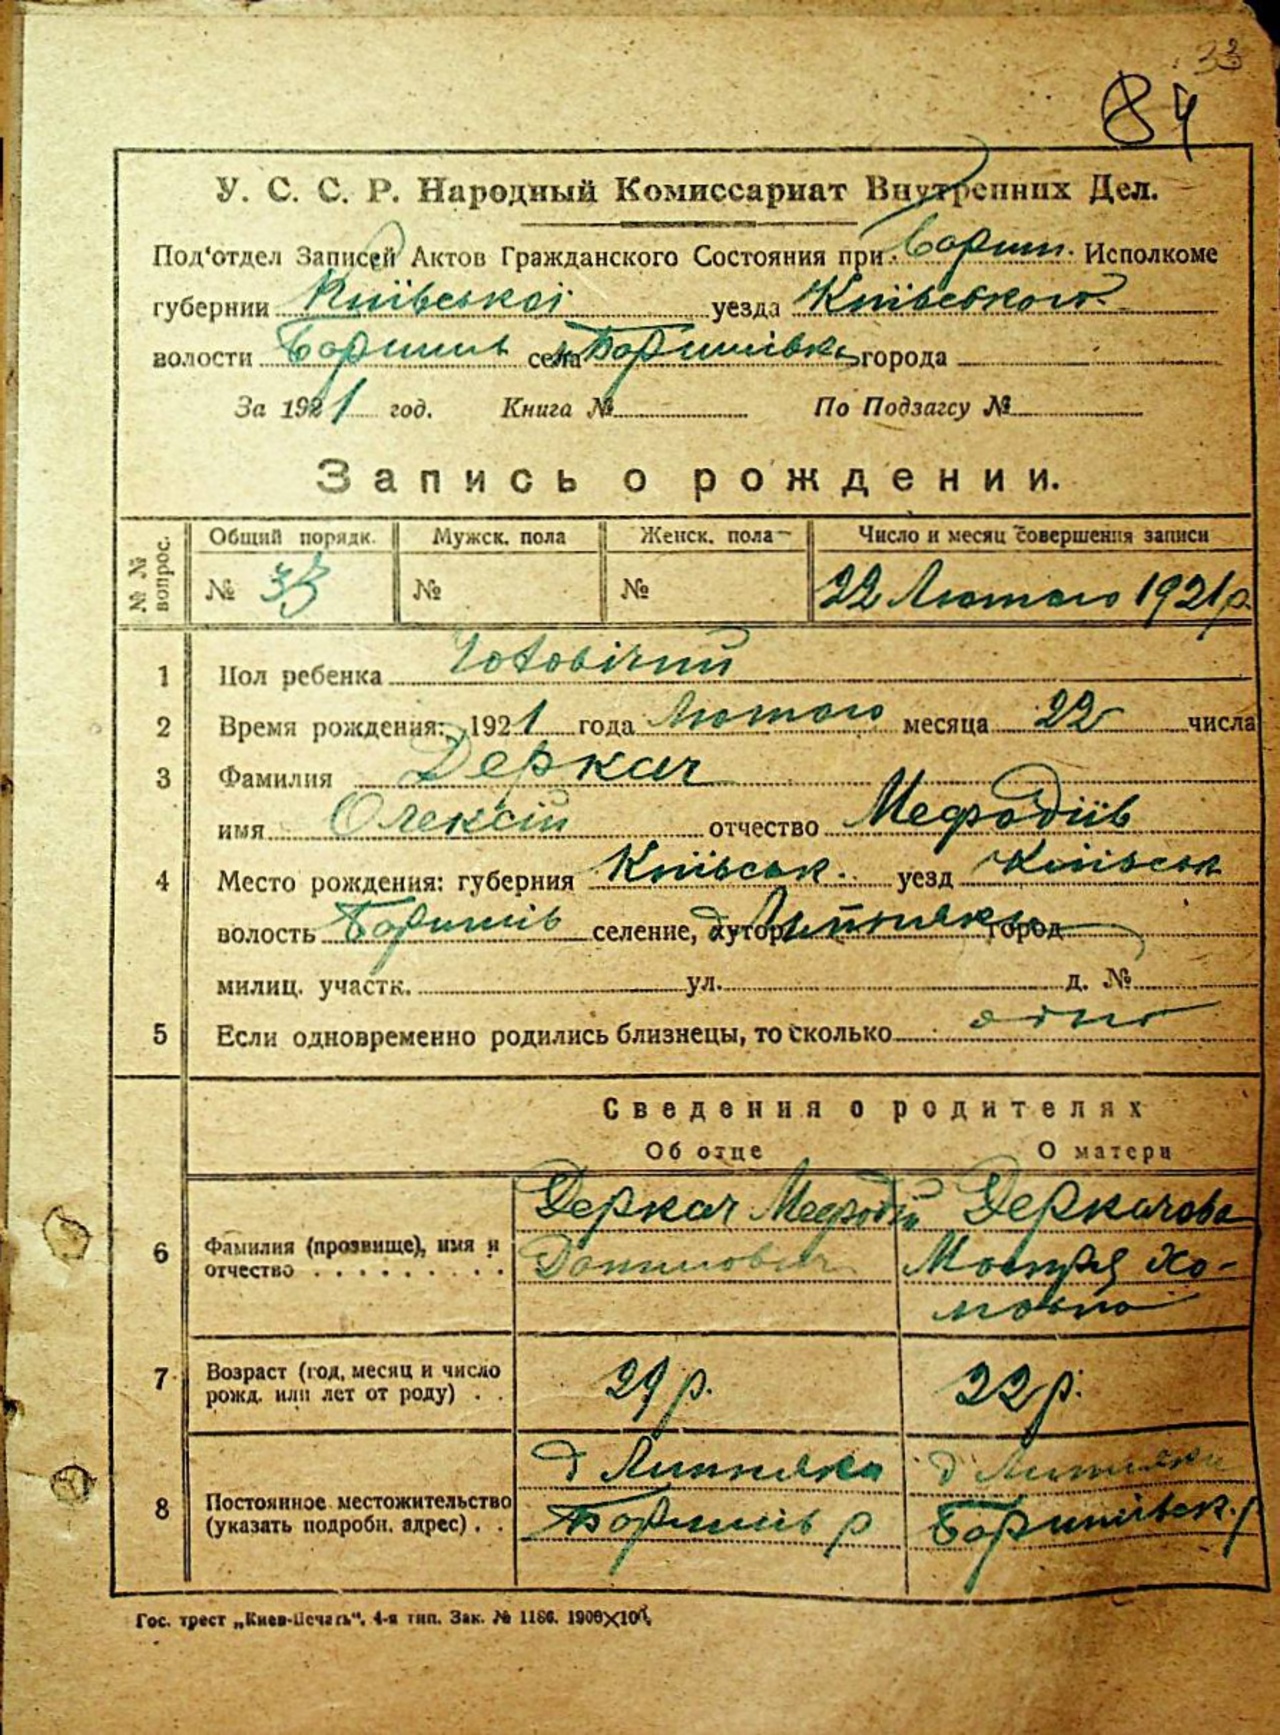 33
84
У. С. С. Р. Народный Комиссариат Внутренних Дел.
Под'отдел Записей Актов Гражданского Состояния при Борщ. Исполкоме
губернии Київської уезда Київського
волости Борщ села Борщівка города
За 1921 год. Книга № По Подзагсу №
Запись о рождении.
№ № вопрос. Общий порядк. Мужск. пола Женск. пола Число и месяц совершения записи
№ 33 № № 22 Лютого 1921 р.
1 Пол ребенка Чоловічий
2 Время рождения: 1921 года Лютого месяца 22 числа
3 Фамилия Деркач
имя Олексій отчество Мефодіїв
4 Место рождения: губерния Київськ. уезд Київськ
волость селение, хутор город
милиц. участк. ул. д. №
5 Если одновременно родились близнецы, то сколько одно
Сведения о родителях
Об отце О матери
6 Фамилия (прозвище), имя и отчество Деркач Мефодій Деркачова
Мотря Хо-
мовна
7 Возраст (год, месяц и число рожд. или лет от роду) 29 р. 22 р.
8 Постоянное местожительство (указать подробн. адрес) д д
р р
Гос. трест „Киев-Печать“. 4-я тип. Зак. № 1186. 1900×100.